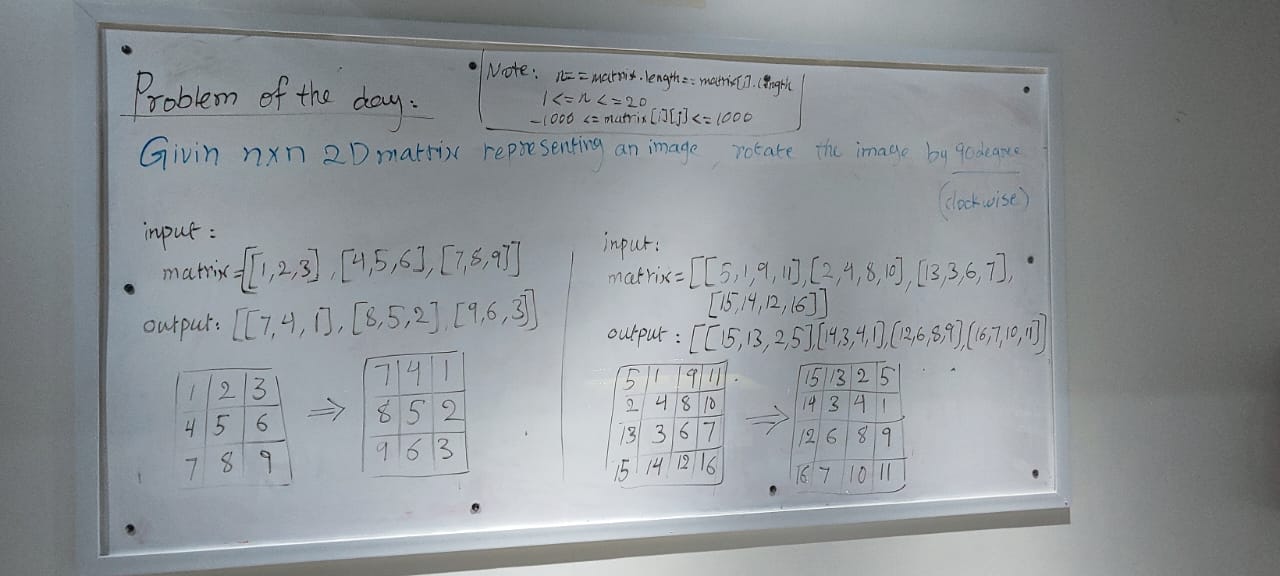 Problem of the day:
Note: n == matrix.length == matrix[].length
1<=n<=20
-1000 <= matrix[i][j]<=1000
Givin nxn 2D matrix representing an image rotate the image by 90degree
(clockwise)
input:
matrix=[[1,2,3],[4,5,6],[7,8,9]]
output: [[7,4,1],[8,5,2],[9,6,3]]
1 2 3
4 5 6
7 8 9
⇒
7 4 1
8 5 2
9 6 3
input:
matrix=[[5,1,9,11],[2,4,8,10],[13,3,6,7],
[15,14,12,16]]
output: [[15,13,2,5],[14,3,4,1],[12,6,8,9],[16,7,10,11]]
5 1 9 11
2 4 8 10
13 3 6 7
15 14 12 16
⇒
15 13 2 5
14 3 4 1
12 6 8 9
16 7 10 11